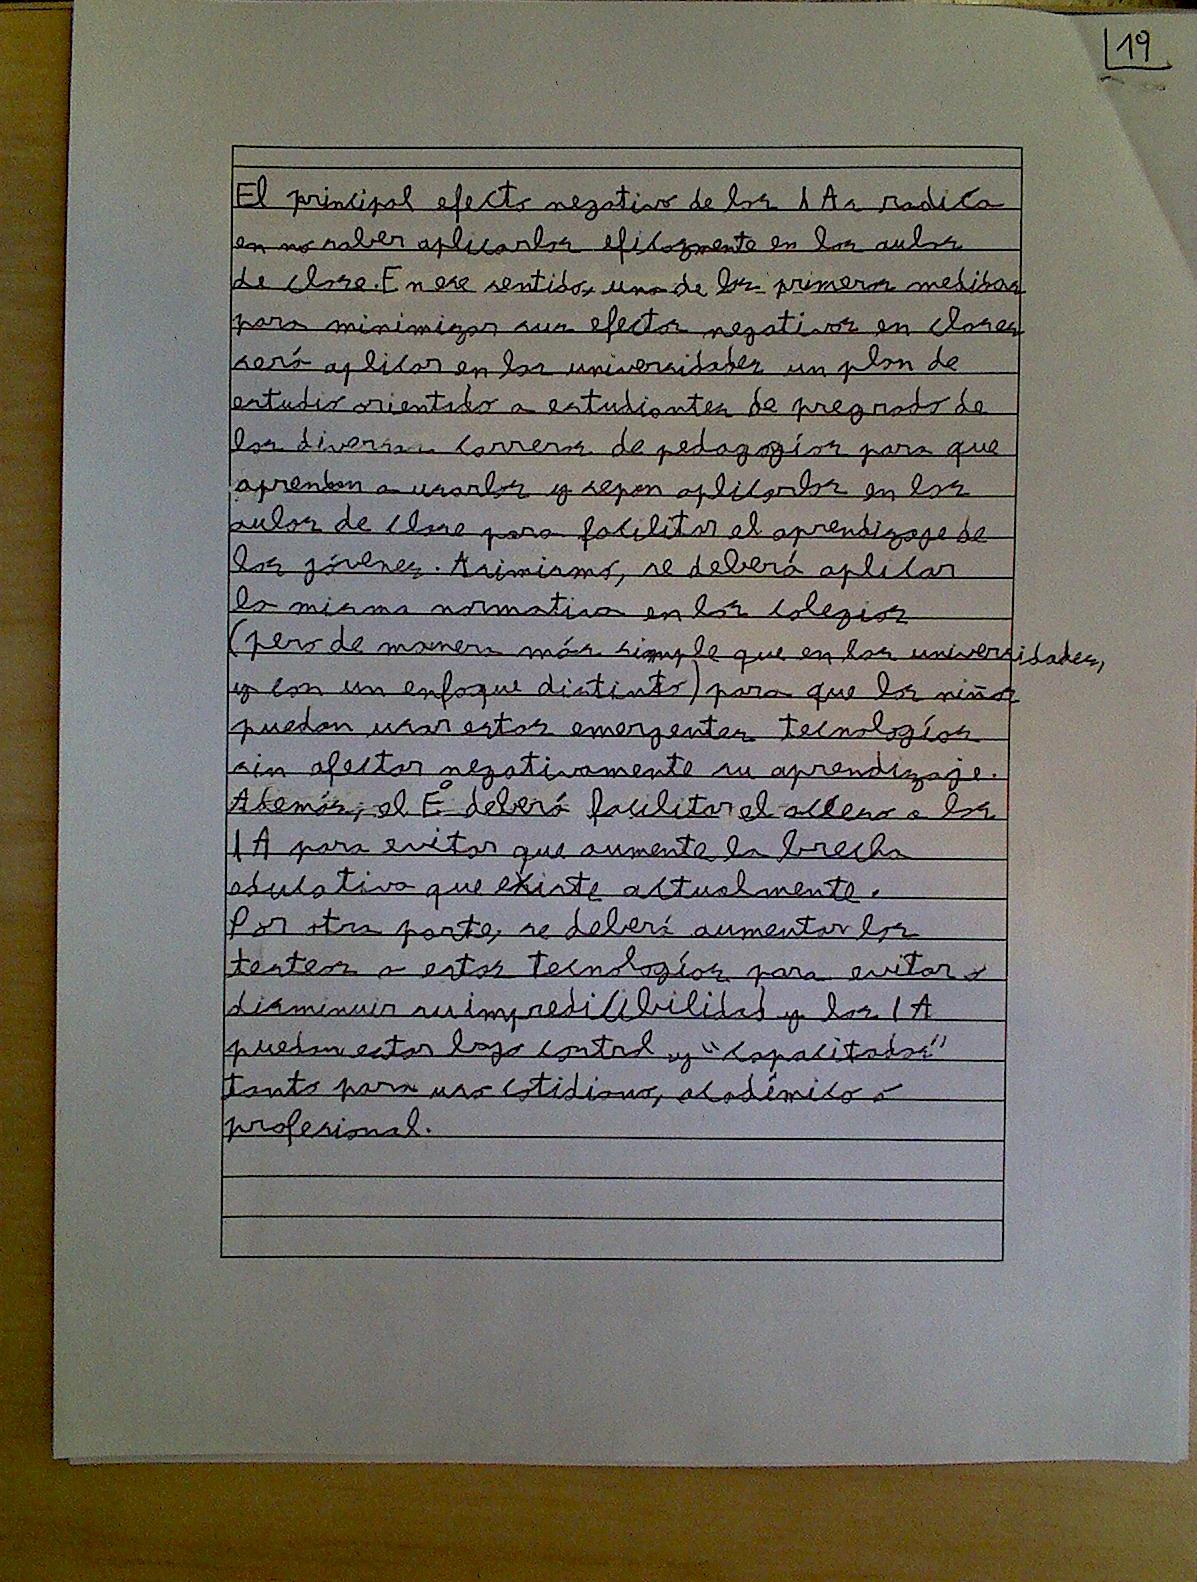 19
El principal efecto negativo de las IAs radica
en no saber aplicarlas eficazmente en las aulas
de clase. En ese sentido, una de las primeras medidas
para minimizar sus efectos negativos en clases
será aplicar en las universidades un plan de
estudio orientado a estudiantes de pregrado de
las diversas carreras de pedagogías para que
aprendan a usarlas y sepan aplicarlas en las
aulas de clase para facilitar el aprendizaje de
los jóvenes. Asimismo, se deberá aplicar
la misma normativa en los colegios
(pero de manera más simple que en las universidades,
y con un enfoque distinto) para que los niños
puedan usar estas emergentes tecnologías
sin afectar negativamente su aprendizaje.
Además, el E° deberá facilitar el acceso a las
IA para evitar que aumente la brecha
educativa que existe actualmente.
Por otra parte, se deberá aumentar los
testeos a estas tecnologías para evitar o
disminuir su impredicibilidad y las IA
puedan estar bajo control y "capacitadas"
tanto para uso cotidiano, académico o
profesional.